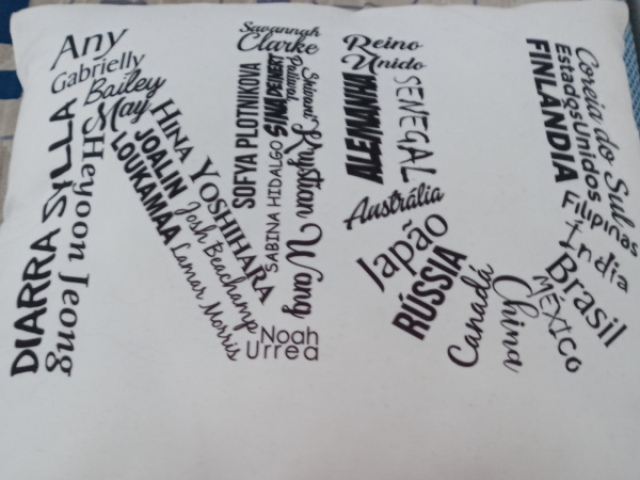 Any
Gabrielly
Bailey
May
DIARRA SYLLA
Heyoon Jeong
HINA YOSHIHARA
JOALIN
LOUKAMAA
Josh Beachamp
Lamar Morris
Noah
Urrea
Savannah
Clarke
SOFYA PLOTNIKOVA
SINA DEINERT
SABINA HIDALGO
Shivani
Paliwal
Krystian Wang
Reino
Unido
ALEMANHA
SENEGAL
Austrália
Japão
RÚSSIA
Canadá
China
MÉXICO
Brasil
Índia
Filipinas
FINLÂNDIA
Estados Unidos
Coreia do Sul